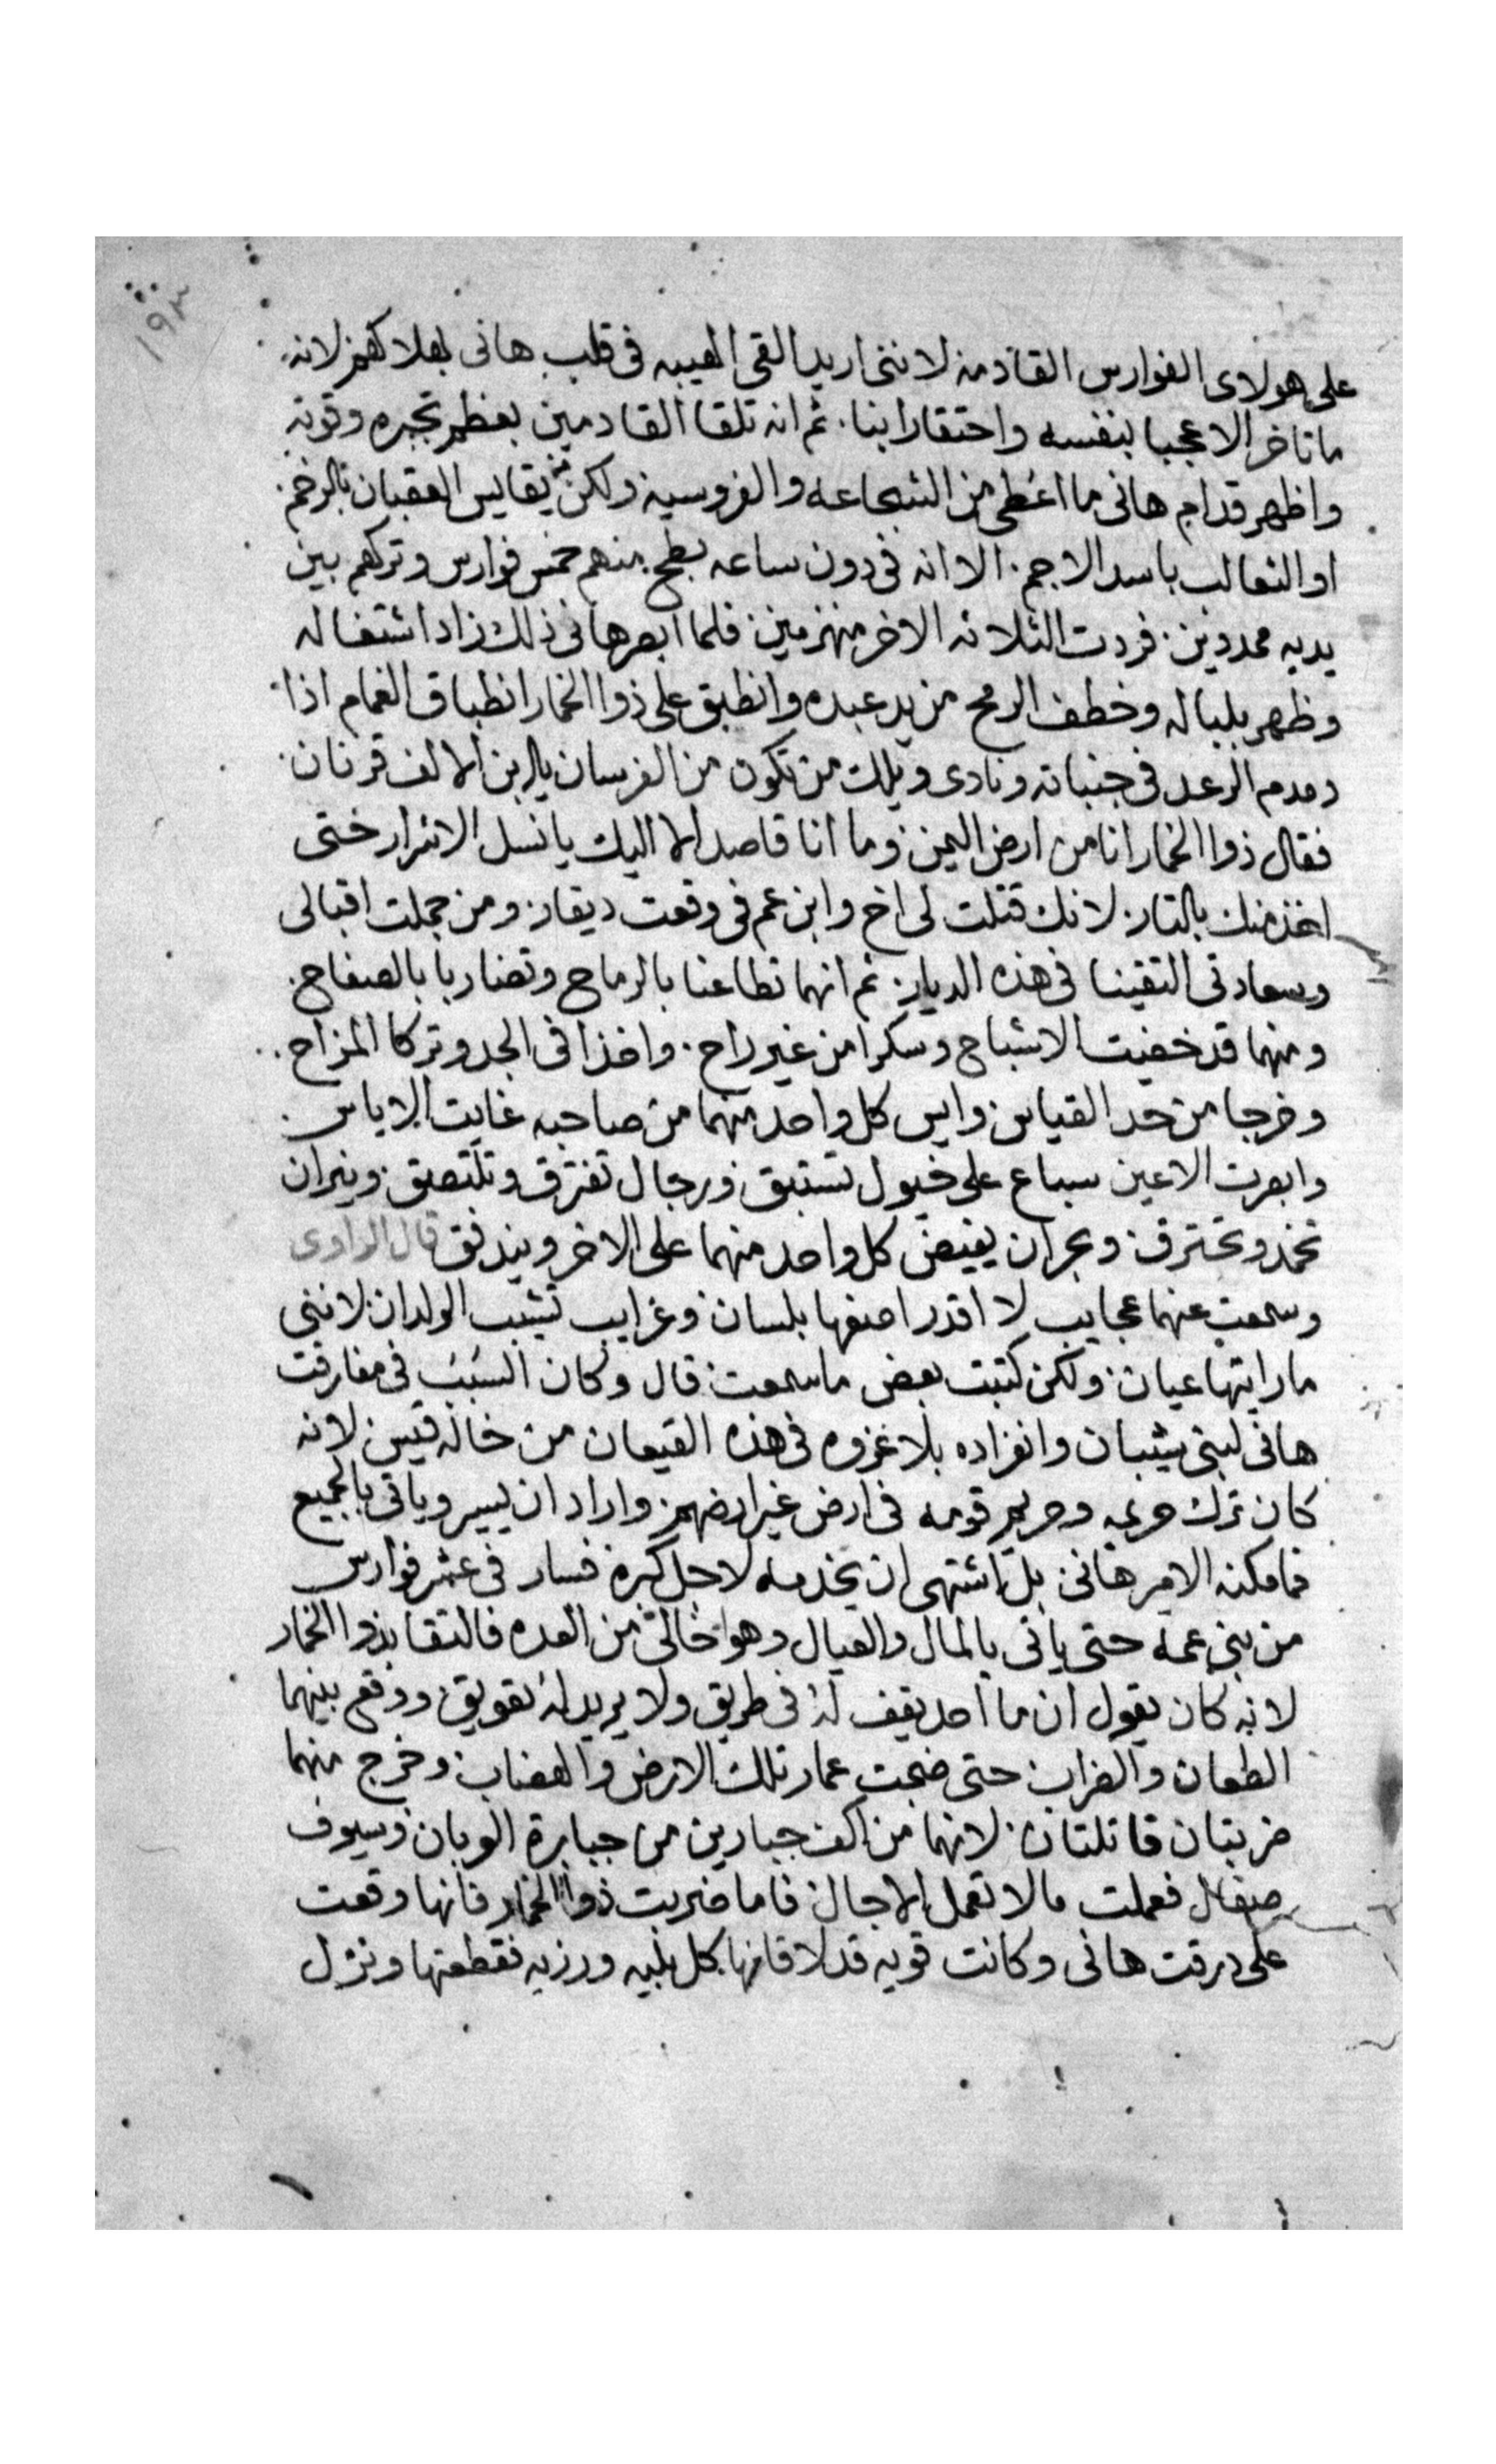 ١٩٣
على هولاى الفوارس القادمه لاننى اريد القى الهيبه فى قلب هانى بهلاكهم لانه
ماتاخر الا عجبا بنفسه واحتقارا بنا. ثم انه تلقا القادمين بعظم تجبره وقوته
واظهر قدام هانى ما اعطى من الشجاعه والفروسيه ولكن من يقايس العقبان بالرخم.
او الثعالب باسد الاجم. الا انه فى دون ساعه بطح منهم خمس فوارس وتركهم بين
يديه ممددين. فردت الثلاثه الاخر منهزمين فلما ابصر هانى ذلك زاد اشتغاله
وظهر بلباله وخطف الرمح من يد عبده وانطبق على ذوا الخمار انطباق الغمام اذا
دمدم الرعد فى جنباته ونادى ويلك من تكون من الفرسان يابن الالف قرنان.
فقال ذوا الخمار انا من ارض اليمن وما انا قاصد الا اليك يانسل الاشرار حتى
اخذ منك بالتار. لانك قتلت لى اخ وابن عم فى وقعت ديقار. ومن جملت اقبالى
وسعادتى التقينا فى هذه الديار. ثم انهما تطاعنا بالرماح وتضاربا بالصفاح.
ومنهما قد خفيت الاشباح وسكرا من غير راح. واخذا فى الجد وتركا المزاح.
وخرجا من حد القياس وايس كل واحد منهما من صاحبه غايت الاياس.
وابصرت الاعين سباع على خيول تستبق ورجال تفترق وتلتصق ونيران
تخمد وتحترق وبحران يفيض كل واحد منهما على الاخر ويندفق قال الراوى
وسمعت عنهما عجايب لا اقدر اصفها بلسان وغرايب تشيب الولدان لاننى
مارايتها عيان ولكن كتبت بعض ماسمعت قال وكان السبب فى مفارقت
هانى لبنى شيبان وانفراده بلاغزوه فى هذه القيعان من خاله قيس لانه
كان ترك حريمه وحريم قومه فى ارض غير ارضهم واراد ان يسير وياتى بالجميع
فامكنه الامير هانى بل اشتهى ان يخدمه لاجل كبره فسار فى عشر فوارس
من بنى عمه حتى ياتى بالمال والعيال وهو خالى من العده فالتقا بذوا الخمار
لانه كان يقول ان ما احد يقف له فى طريق ولا يريد له تعويق ووقع بينهما
الطعان والضراب حتى ضجت عمار تلك الارض والهضاب وخرج منهما
ضربتان قاتلتان. لانهما من اكف جبارين من جبابرة الوبان وسيوف
صقال فعملت مالا تعمل الاجال فاما ضربت ذوا الخمار فانها وقعت
على درقت هانى وكانت قويه قد لاقا بها كل بليه ورزيه فقطعتها ونزل